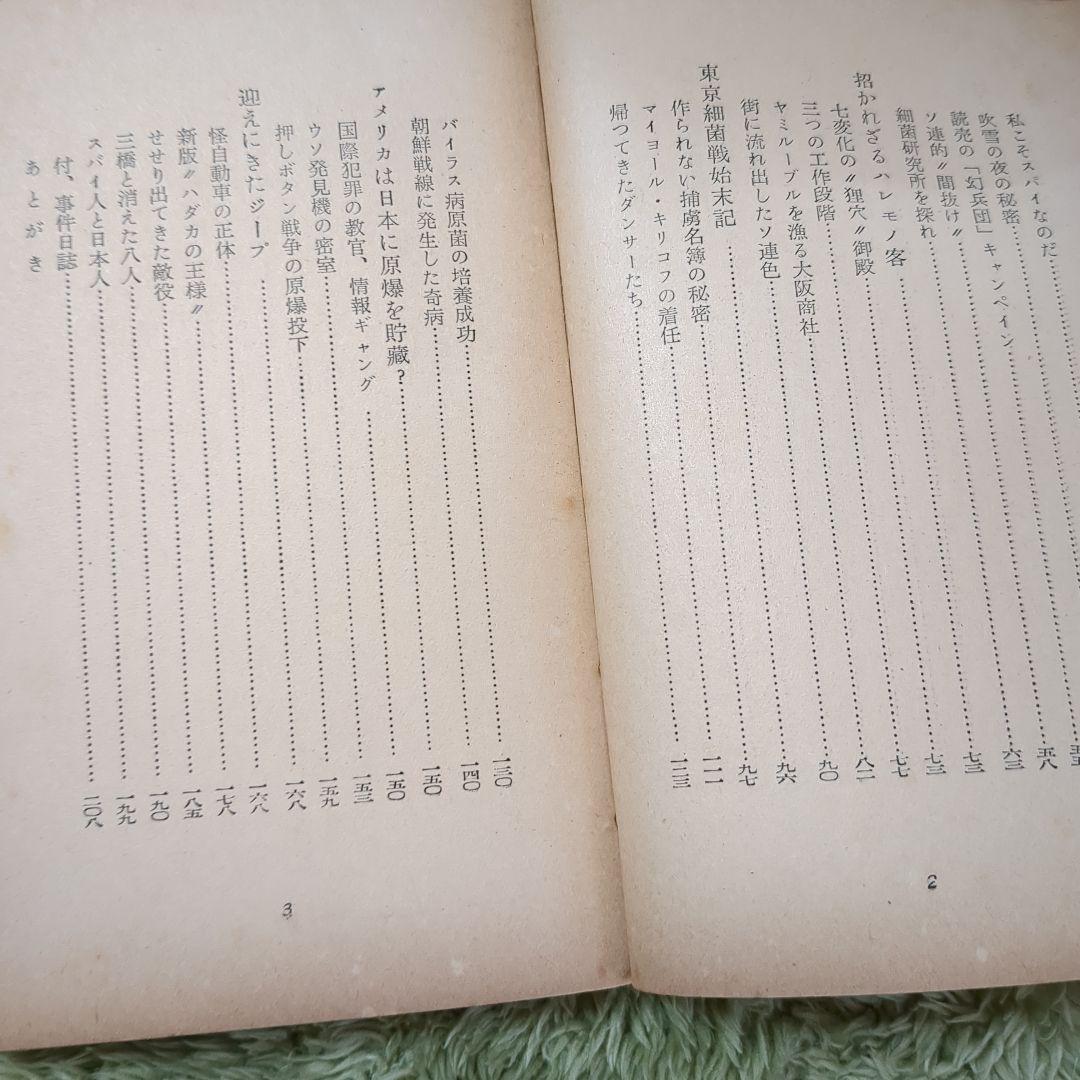 私こそスパイなのだ
吹雪の夜の秘密
読売の「幻兵団」キャンペイン……五五
ソ連的〃間抜け〃……五八
細菌研究所を探れ……六三
招かれざるハレモノ客……七三
七変化の〃狸穴〃御殿……七三
三つの工作段階……七七
ヤミルーブルを漁る大阪商社……八二
街に流れ出したソ連色……九〇
東京細菌戦始末記……九六
作られない捕虜名簿の秘密……九七
マイヨール・キリコフの着任……一一一
帰つてきたダンサーたち……一二三
2
バイラス病原菌の培養成功……一三〇
朝鮮戦線に発生した奇病……一四〇
アメリカは日本に原爆を貯蔵?……一五〇
国際犯罪の教官、情報ギャング……一五〇
ウソ発見機の密室……一五三
押しボタン戦争の原爆投下……一五九
迎えにきたジープ……一六八
怪自動車の正体……一六八
新版〃ハダカの王様〃……一七八
せせり出てきた敵役……一八五
三橋と消えた八人……一九〇
スパイ人と日本人……一九九
付、事件日誌……二〇八
あとがき
3